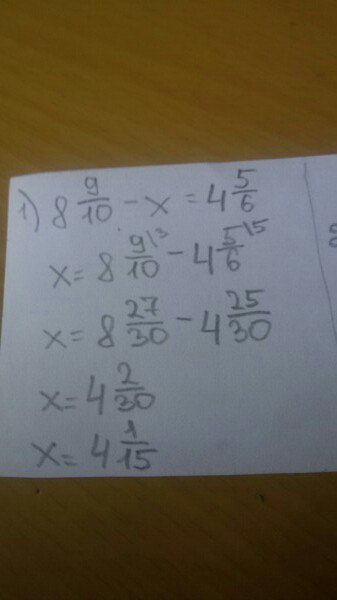 1) 8 9/10 - x = 4 5/6
x = 8 9\3/10 - 4 5\5/6
x = 8 27/30 - 4 25/30
x = 4 2/30
x = 4 1/15